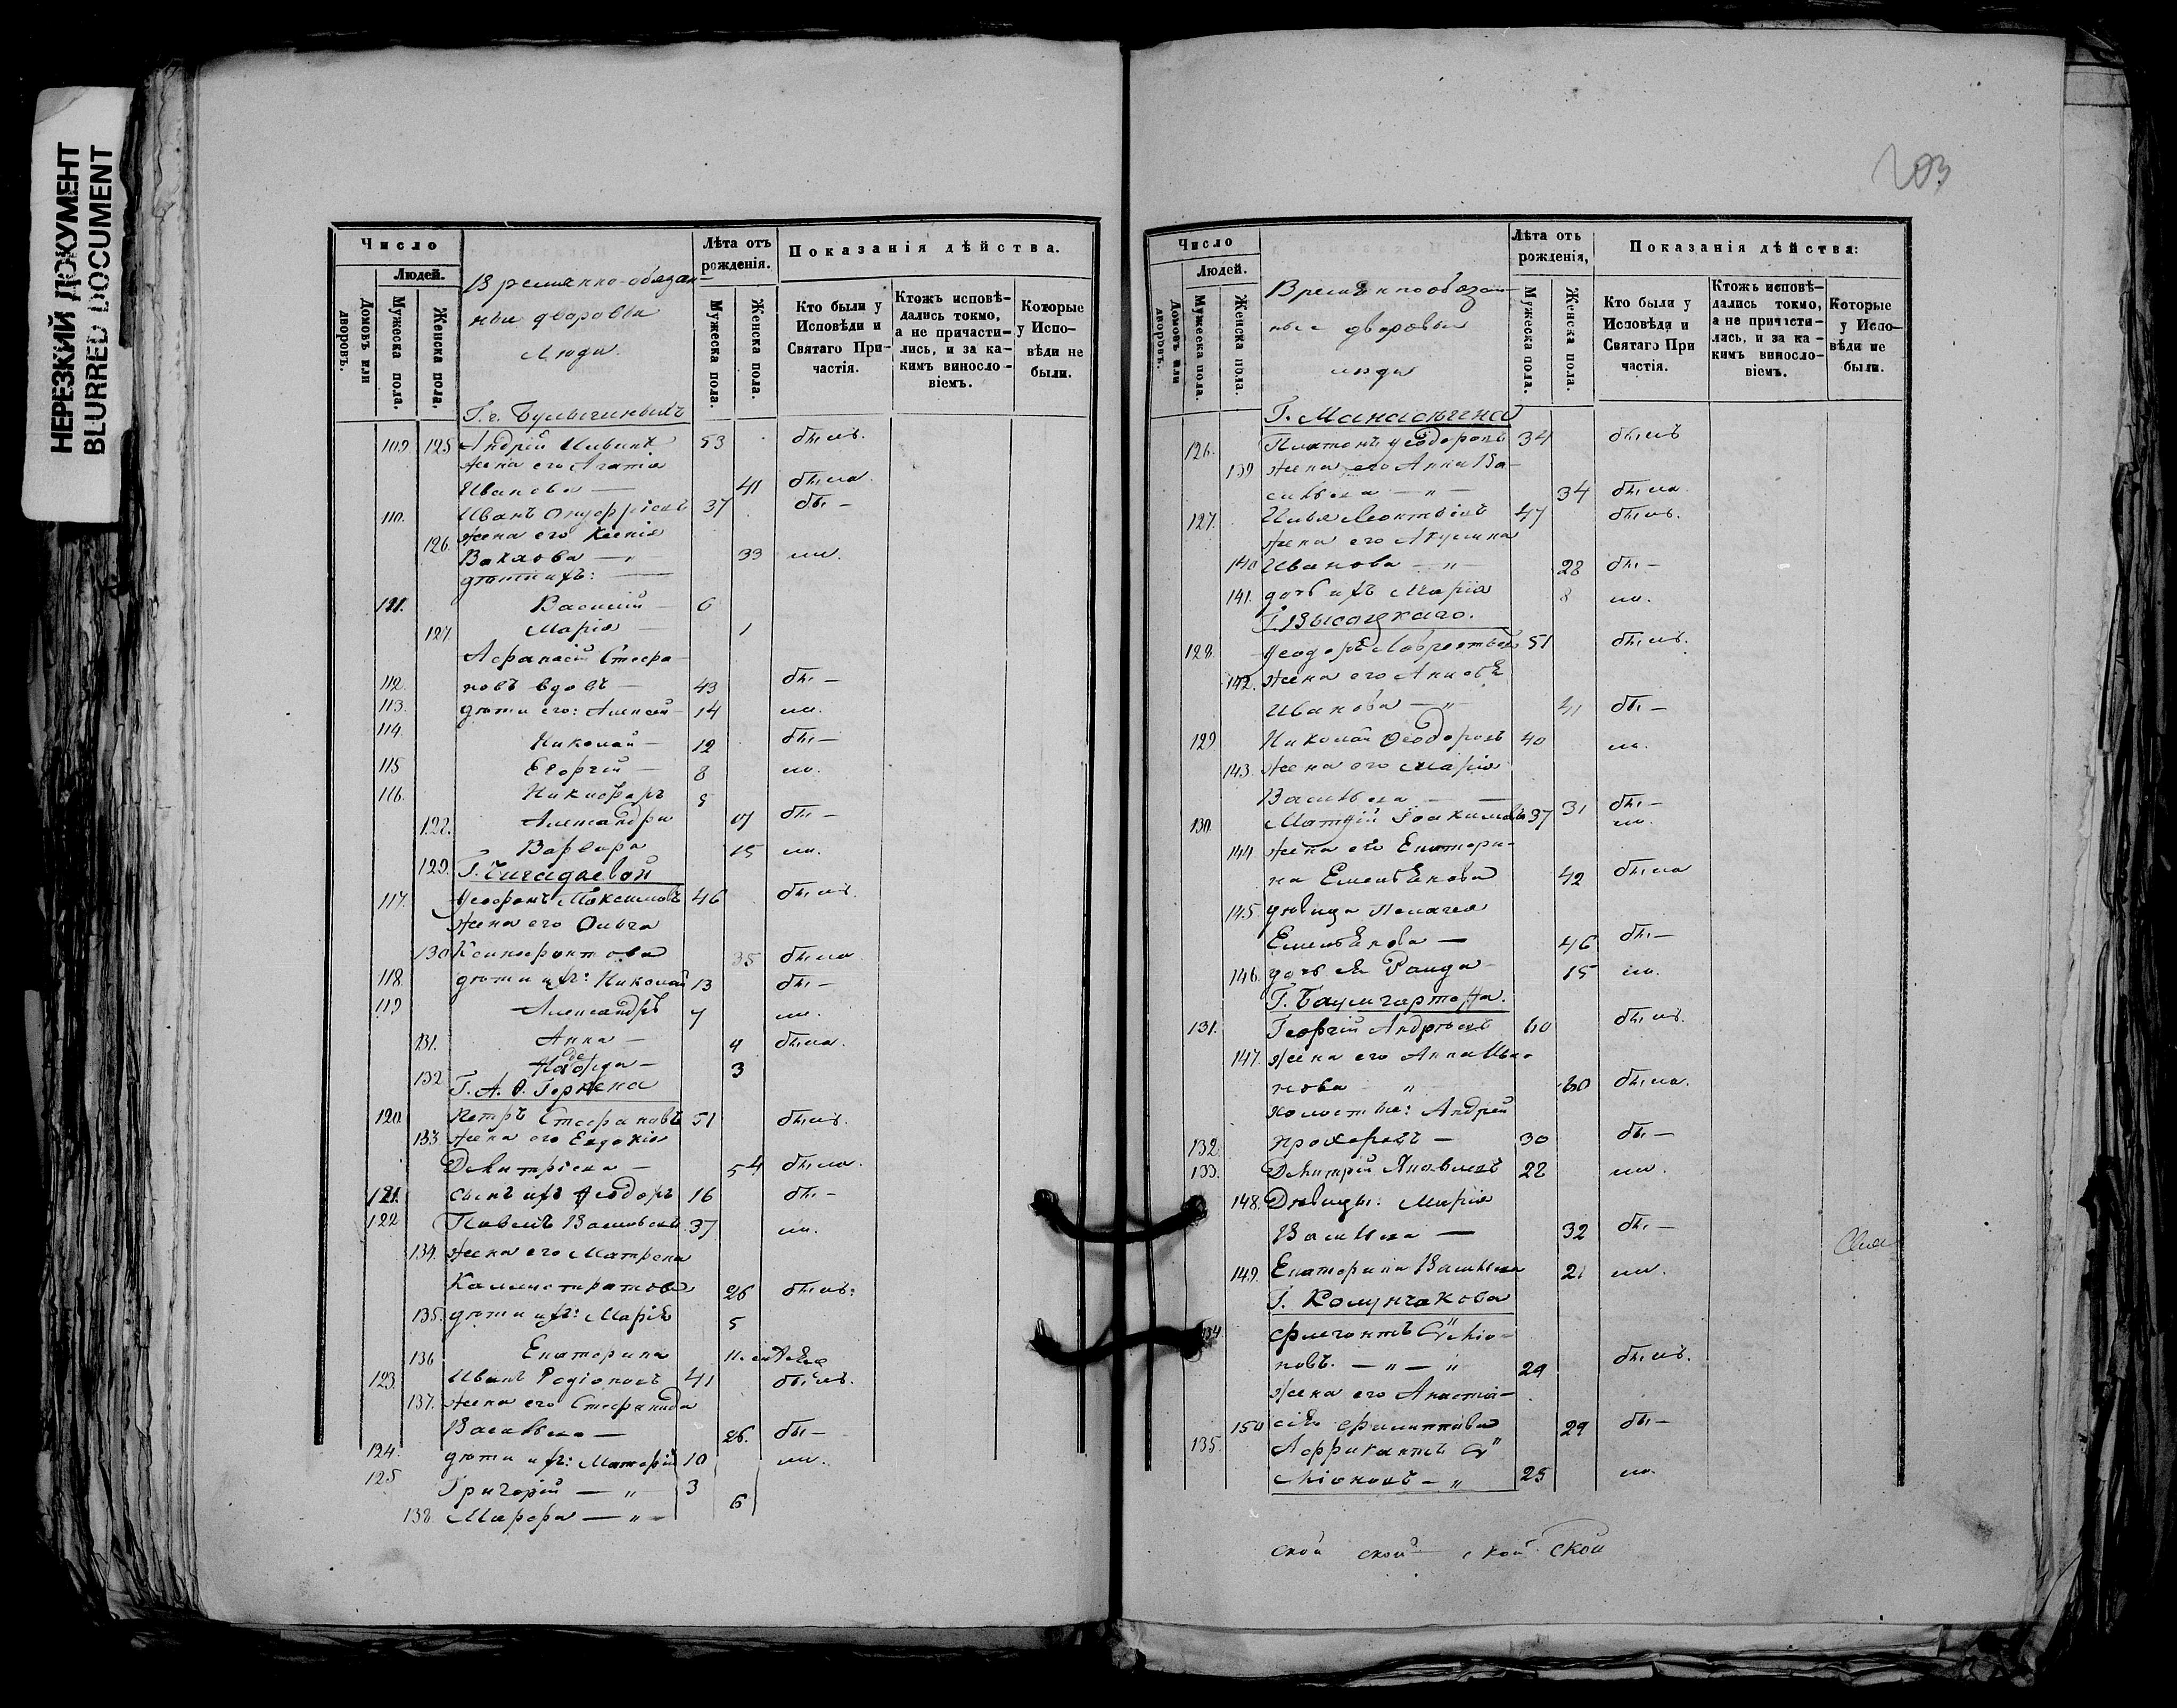 НЕРЕЗКИЙ ДОКУМЕНТ
BLURRED DOCUMENT
Число
Людей.
Домовъ или дворовъ.
Мужеска пола.
Женска пола.
Временно-обязан-
ные дворовые
Люди.
Лѣта отъ рожденія.
Мужеска пола.
Женска пола.
Показанія дѣйства.
Кто были у Исповѣди и Святаго Причастія.
Ктожъ исповѣдались токмо, а не причастились, и за какимъ винословіемъ.
Которые у Исповѣди не были.
109 125 Андрей 53 былъ.
жена его Агатія
Иванова — 41 была.
110. Иванъ Онуфріевъ 37 бы —
126. жена его Ксенія
33 ла.
дѣти ихъ: —
111. Василій — 6
127. Марія — 1
Афанасій Стефа-
112. новъ вдовъ — 43 бы —
113. дѣти его: Алексей — 14 ла.
114. Николай — 12 бы —
115 Георгій — 8 ло.
116. Никифоръ 5
122. Александра 17 бы —
Варвара 15 ла.
129. Г.
117. Максимовъ 46 былъ.
жена его Ольга
130 Ксенофонтова 35 была
118. дѣти ихъ: Николай 13 бы —
119 Александръ 7 ло.
131. Анна — 4 была.
132 Надежда — 3
Г. А. Ѳ. Герцена
120. Петръ Стефановъ 51 былъ.
133 жена его Евдокія
Димитріева — 54 была.
121. сынъ ихъ Ѳеодоръ 16 бы —
122 Павелъ Васильевъ 37 ло.
134. жена его Матрена
Каллистратова 26 былъ:
135. дѣти ихъ: Марія 5
136 Екатерина
123. Иванъ Родіоновъ 41 былъ.
137. жена его Стефанида
Васильева — 26. бы —
124. дѣти ихъ: 10 ло.
125 Григорій — „ — 3
138. Марфа — „ — 6
203
Число
Людей.
Домовъ или дворовъ.
Мужеска пола.
Женска пола.
Временнообязан-
ные дворовые
люди
Лѣта отъ рожденія,
Мужеска пола.
Женска пола.
Показанія дѣйства:
Кто были у Исповѣди и Святаго При частія.
Ктожъ исповѣ-дались токмо, а не причасти-лись, и за ка-кимъ винословіемъ.
Которые у Исповѣди не были.
126. Платонъ Ѳеодоровъ 34 былъ
139 жена его Анна Ва-
сильева — „ — 34 была.
127. Илья Леонтьевъ 47 былъ.
жена его Акулина
140 Иванова — „ — 28 бы —
141. дочь ихъ Марія 8 ла.
Г. Высоцкаго.
128. Ѳеодоръ Лаврентьевъ 51 былъ.
142. жена его
Иванова — „ — 41 бы —
129 Николай Ѳеодоровъ 40 ло.
143. жена его Марія
Васильева — 31 бы —
130. Матѳій Іоакимовъ 37 ло.
144 жена его Екатери-
на Емельянова 42 была
145 дѣвица Пелагея
Емельянова — 46 бы —
146. дочь ея Раида 15 ла.
Г. Баумгартена.
131. Георгій Андреевъ 60 былъ.
147. жена его Анна Ива-
нова „ 60 была.
холостые: Андрей
132. Прохоровъ — 30 бы —
133. Димитрій Яковлевъ 22 ло.
148. Дѣвицы: Марія
Васильева — 32 бы —
149. Екатерина Васильева 21 ла.
Г. Колунчакова
134 Флегонтъ
новъ. — „ — „ 29 былъ.
жена его Анаста-
150 сія Филиппова 29 бы —
135. Африканъ
25 ло.
ской ской ской ской